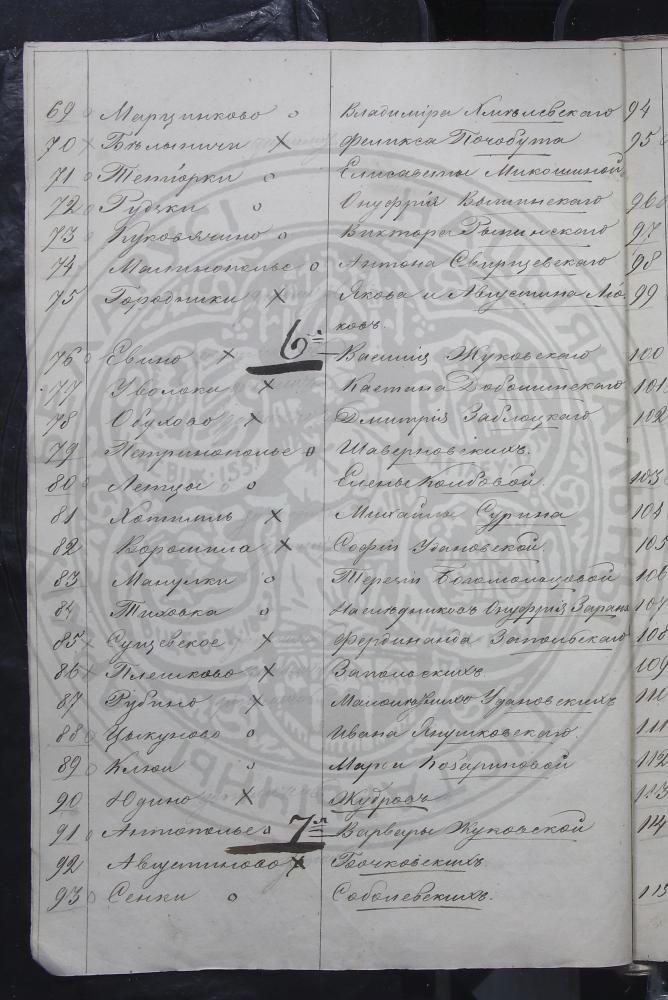 69 Марцинково о Владиміра Хмѣлевскаго 94
70 Бѣлыничи × Феликса Почобута 95
71 Тетіорки о Елисаветы Микошиной
72 Гудзки о Онуфрія 96
73 Куковячино о Виктора Рыпинскаго 97
74 Малинополье о Антона Свирщевскаго 98
75 Городники × Якова и Августина Лю- 99
ковъ.
6
76 Евино × Василія Жуковскаго 100
77 Уволоки × Каетана 101
78 Обухово × Дмитрія Заблоцкаго 102
79 Петринополье о Шаверновскихъ.
80 Летцы о Елены Колбовой. 103
81 Хотимль × Михайлы Сурина 104
82 Ворошила × Софіи Улановской. 105
83 Мацулки о Терезіи Богомольцовой 106
84 Тиховка о Наслѣдниковъ Онуфрія Заранк 107
85 Сущевское × Фердинанда Запольскаго 108
86 Плешково × Запольскихъ. 109
87 Рубино × Улановскихъ 110
88 Цыкуново о Ивана Янушковскаго. 111
89 Клюи о Маріи Козариновой 112
90 Юдино × 113
7я
91 Антополье о Варвары Жуковской 114
92 Августиново × Бочковскихъ
93 Сенки о Соболевскихъ. 115